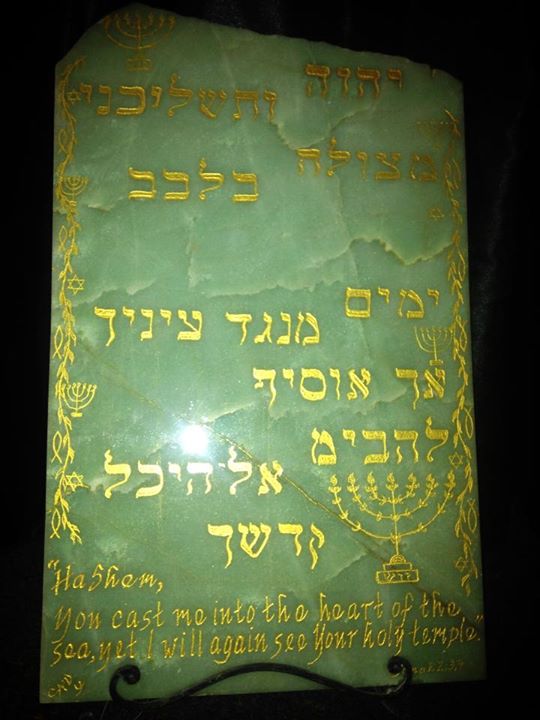 יהוה ותשליכני
מצולה בלבב
ימים
מנגד עיניך
אך אוסיף
להביט
אל־היכל
קדשך
"HaShem,
You cast me into the heart of the
sea, yet I will again see Your holy temple."